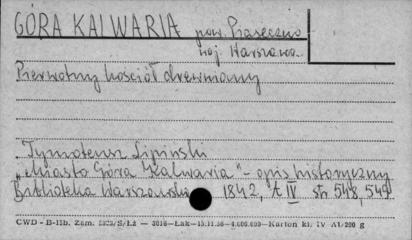 GÓRA KALWARIA pow. Piaseczno
woj. Warszawa.
Pierwotny kościół drewniany
Tymoteusz Lipiński
"Miasto Góra Kalwaria" - opis historyczny
Biblioteka Warszawska 1842, t. IV str. 548, 549
CWD - B-11b. Zam. S/Lż — 3016 — Lak — 15.11.56 — 4.000.000 — Karton kl. IV A1/200 g